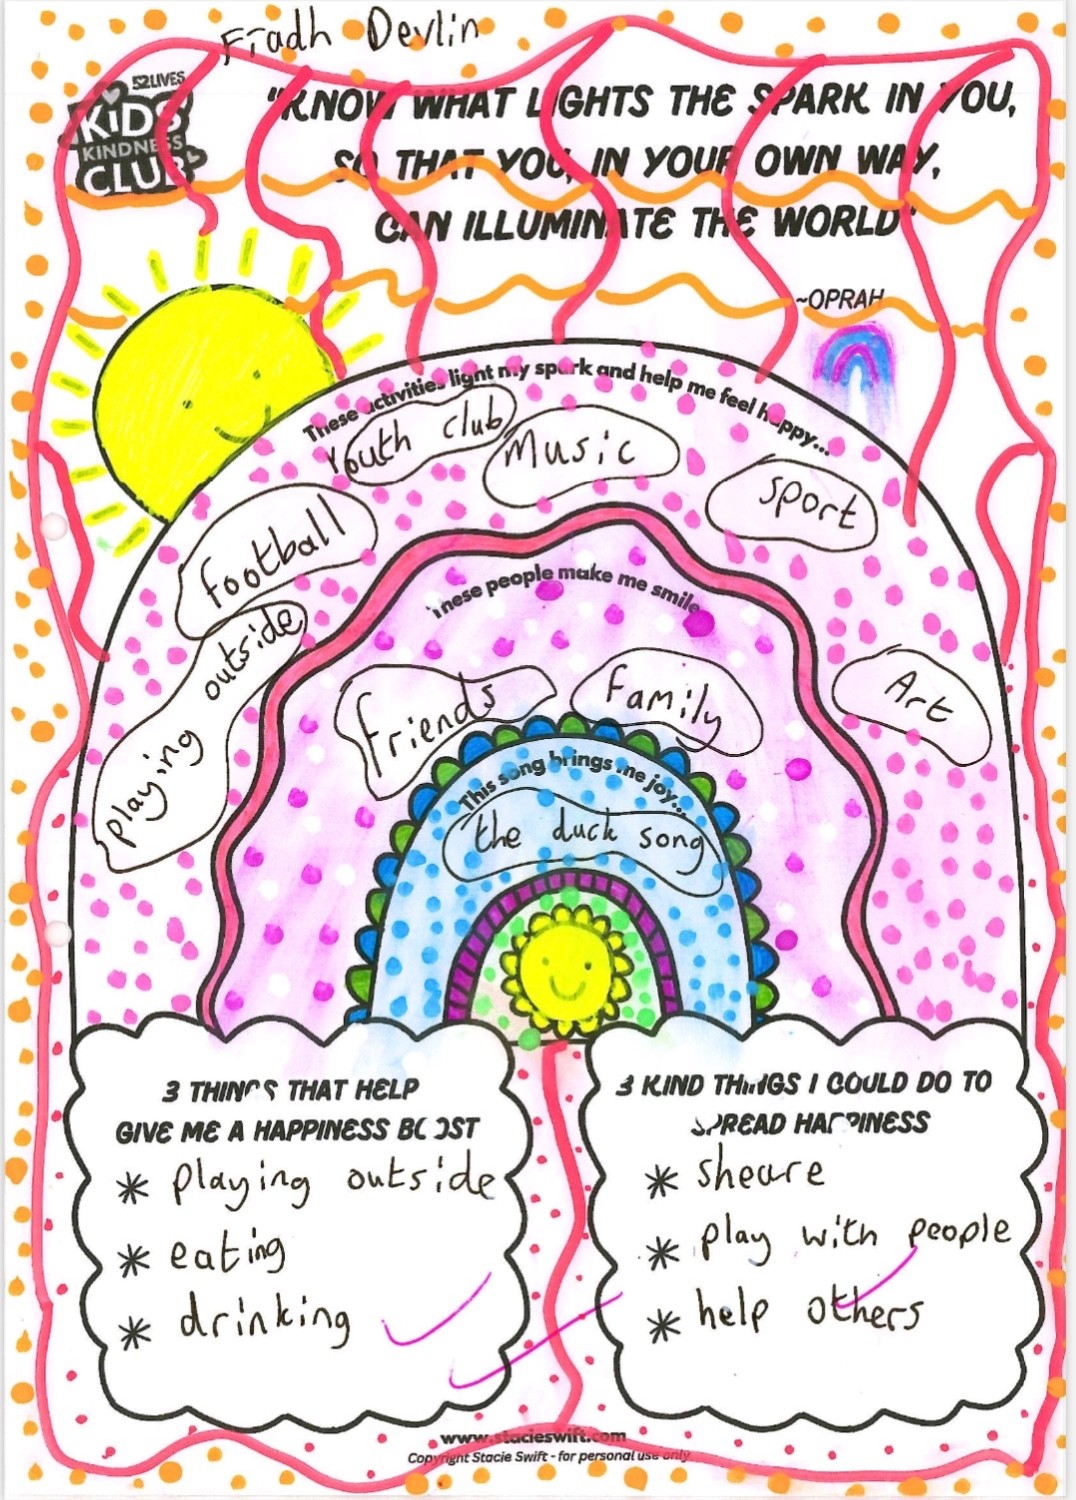 Fiadh Devlin
52LIVES
KiDS
KINDNESS
CLUB
"KNOW WHAT LIGHTS THE SPARK IN YOU,
SO THAT YOU, IN YOUR OWN WAY,
CAN ILLUMINATE THE WORLD"
~OPRAH
These activities light my spark and help me feel happy...
Youth club
Music
sport
football
playing outside
Art
These people make me smile
friends
family
This song brings me joy...
the duck song
3 THINGS THAT HELP
GIVE ME A HAPPINESS BOOST
* playing outside
* eating
* drinking
3 KIND THINGS I COULD DO TO
SPREAD HAPPINESS
* sheare
* play with people
* help others
www.stacieswift.com
Copyright Stacie Swift - for personal use only